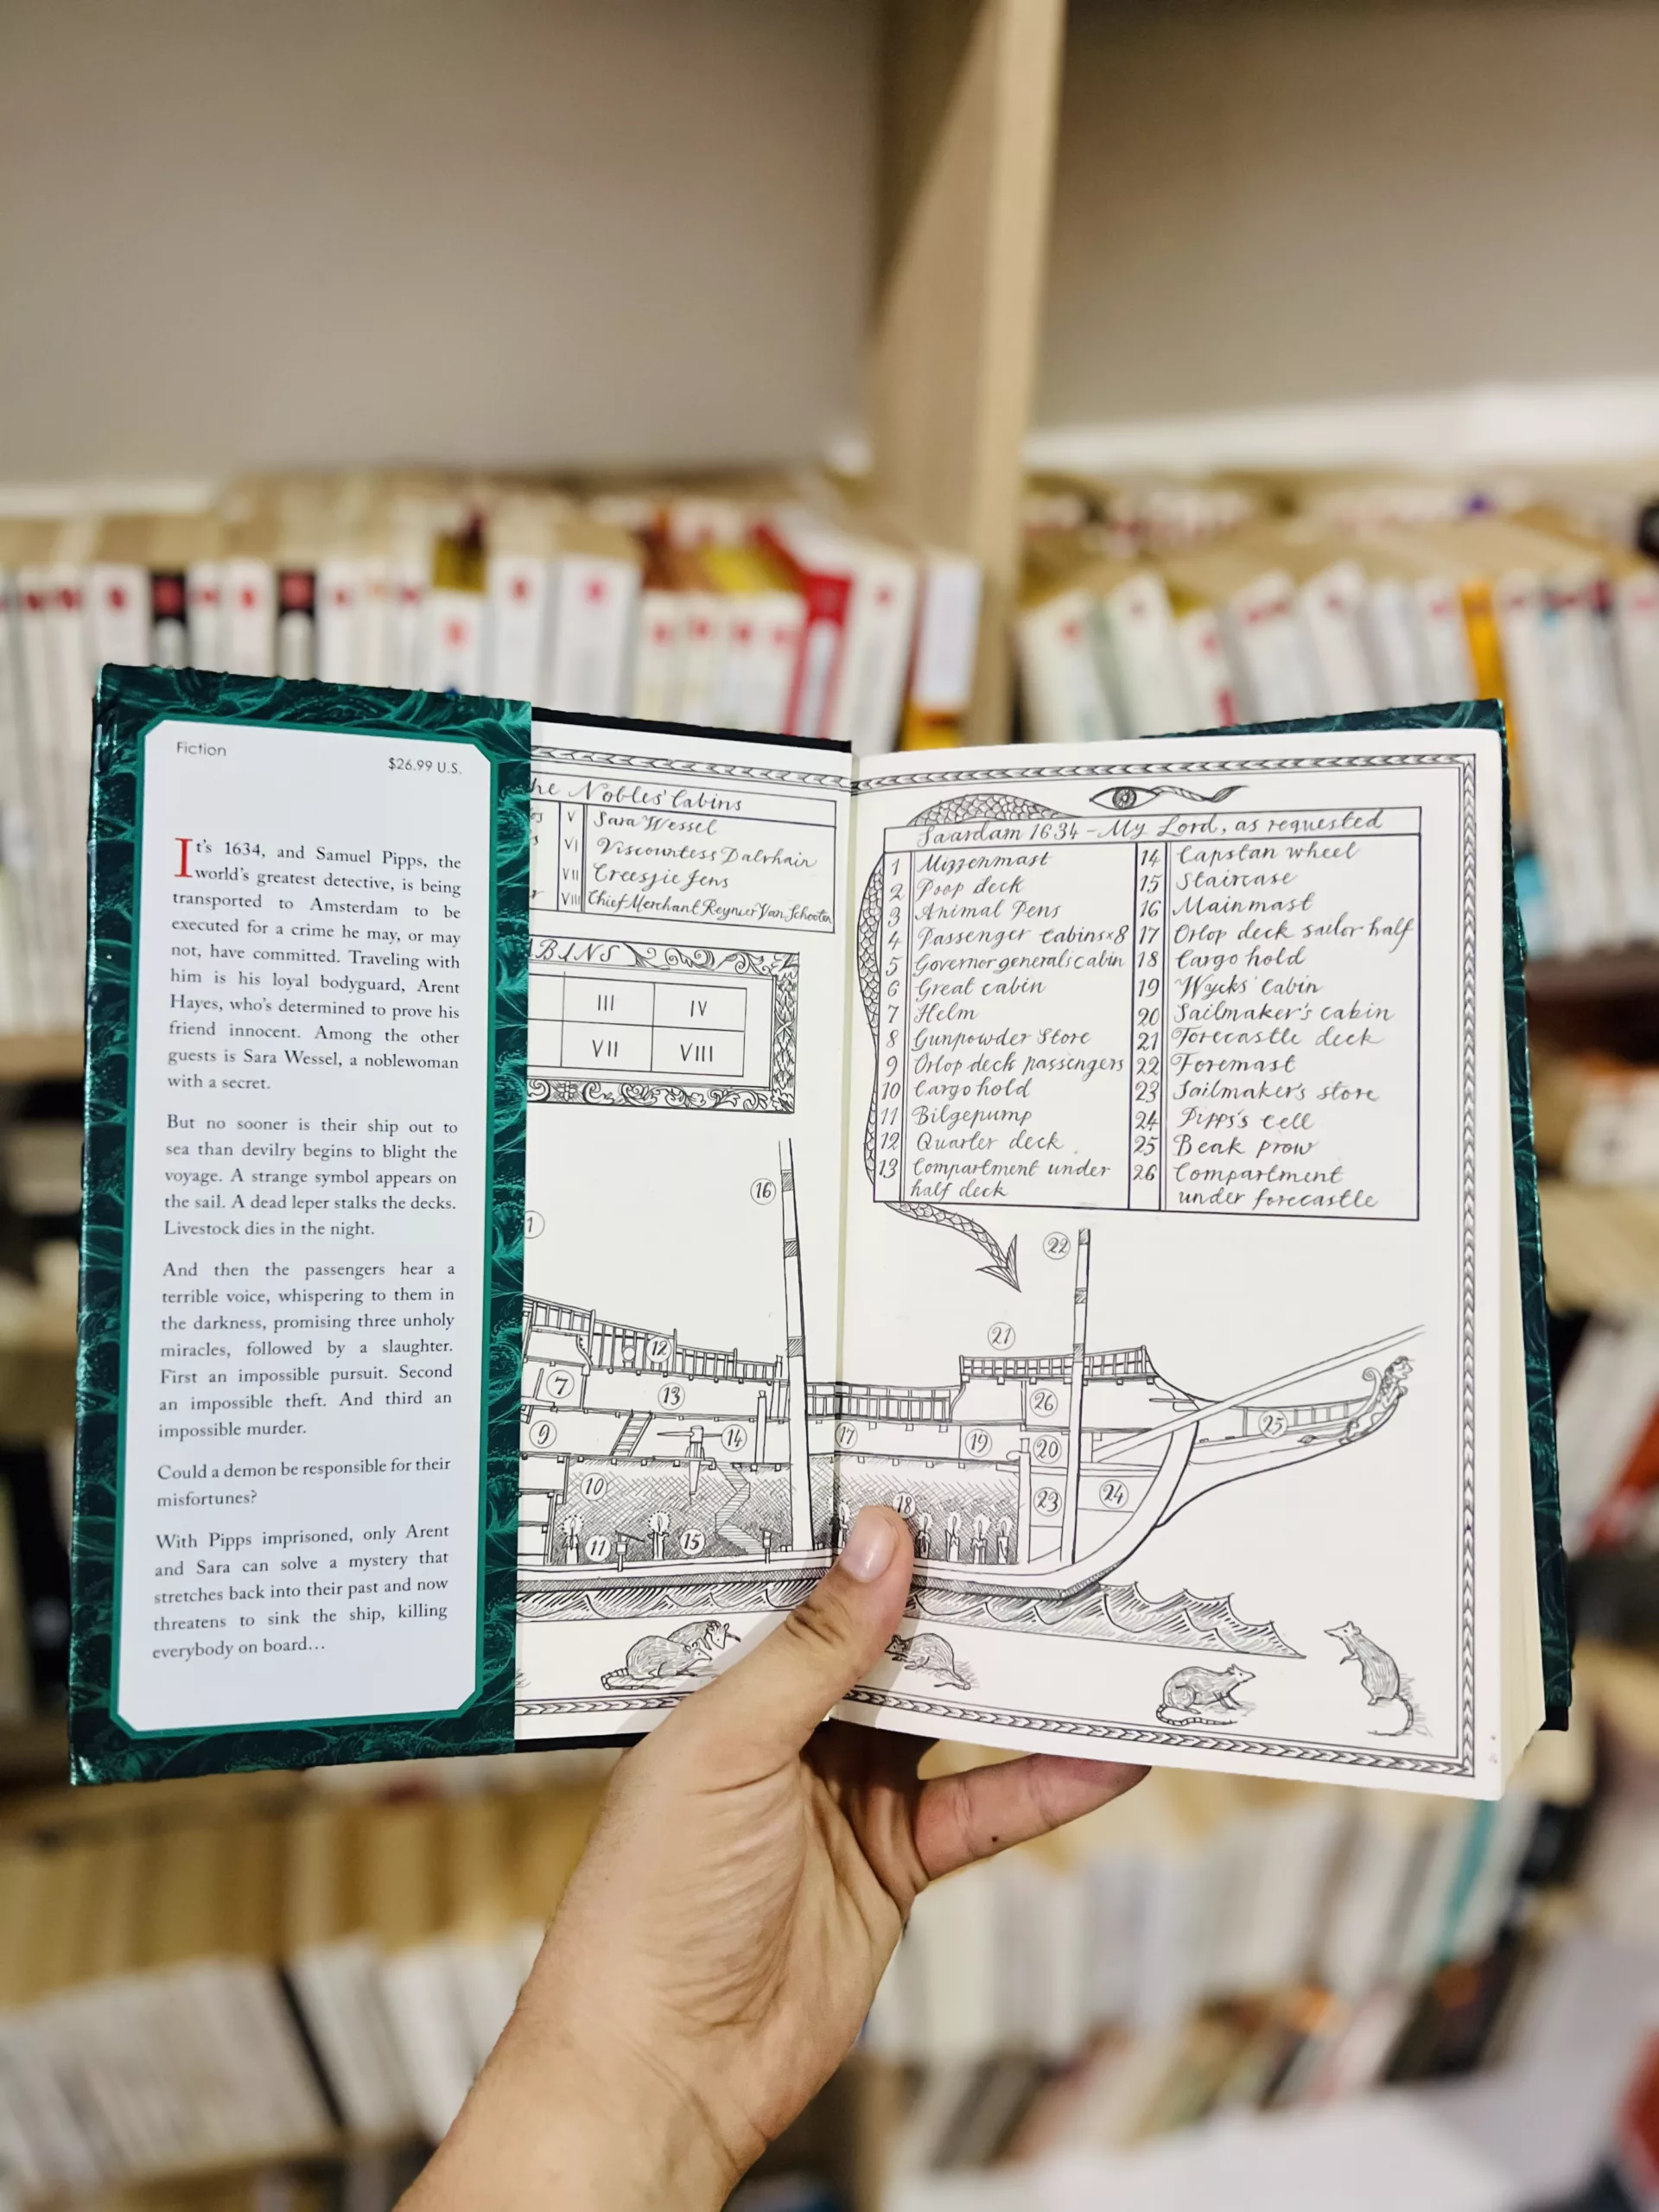 Fiction
$26.99 U.S.
It's 1634, and Samuel Pipps, the
world's greatest detective, is being
transported to Amsterdam to be
executed for a crime he may, or may
not, have committed. Traveling with
him is his loyal bodyguard, Arent
Hayes, who's determined to prove his
friend innocent. Among the other
guests is Sara Wessel, a noblewoman
with a secret.
But no sooner is their ship out to
sea than devilry begins to blight the
voyage. A strange symbol appears on
the sail. A dead leper stalks the decks.
Livestock dies in the night.
And then the passengers hear a
terrible voice, whispering to them in
the darkness, promising three unholy
miracles, followed by a slaughter.
First an impossible pursuit. Second
an impossible theft. And third an
impossible murder.
Could a demon be responsible for their
misfortunes?
With Pipps imprisoned, only Arent
and Sara can solve a mystery that
stretches back into their past and now
threatens to sink the ship, killing
everybody on board...
he Nobles' Cabins
V Sara Wessel
VI Viscountess Dalvhain
VII Creesjie Jens
VIII Chief Merchant Reynier Van Schooten
BINS
III IV
VII VIII
Saardam 1634 - My Lord, as requested
1 Mizzenmast
2 Poop deck
3 Animal Pens
4 Passenger Cabins x 8
5 Governor general's cabin
6 Great cabin
7 Helm
8 Gunpowder Store
9 Orlop deck passengers
10 Cargo hold
11 Bilgepump
12 Quarter deck
13 Compartment under
half deck
14 Capstan wheel
15 Staircase
16 Mainmast
17 Orlop deck sailor half
18 Cargo hold
19 Wycks' Cabin
20 Sailmaker's cabin
21 Forecastle deck
22 Foremast
23 Sailmaker's store
24 Pipps's cell
25 Beak prow
26 Compartment
under forecastle
16
1
22
21
12
7
13
26
25
9
14
17
19
20
10
18
23
24
11
15